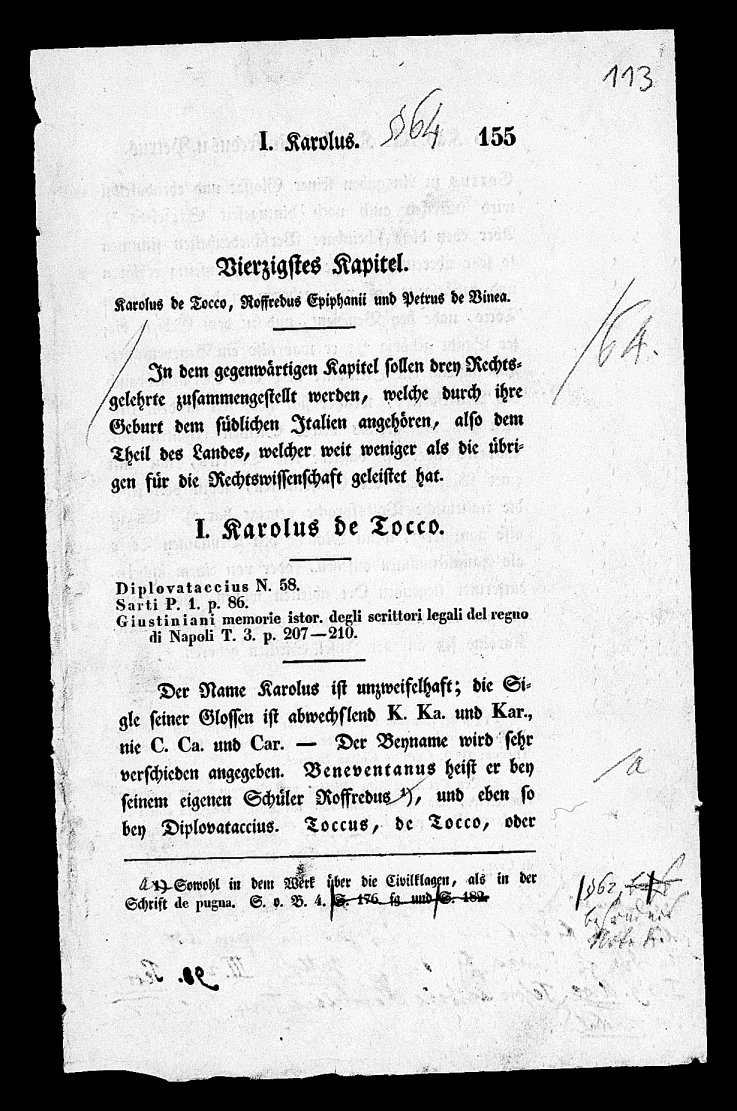 113
I. Karolus. §64 155
Vierzigstes Kapitel.
Karolus de Tocco, Roffredus Epiphanii und Petrus de Vinea.
64.
In dem gegenwärtigen Kapitel sollen drey Rechts-
gelehrte zusammengestellt werden, welche durch ihre
Geburt dem südlichen Italien angehören, also dem
Theil des Landes, welcher weit weniger als die übri-
gen für die Rechtswissenschaft geleistet hat.
I. Karolus de Tocco.
Diplovataccius N. 58.
Sarti P. 1. p. 86.
Giustiniani memorie istor. degli scrittori legali del regno
di Napoli T. 3. p. 207—210.
Der Name Karolus ist unzweifelhaft; die Si-
gle seiner Glossen ist abwechslend K. Ka. und Kar.,
nie C. Ca. und Car. — Der Beyname wird sehr
verschieden angegeben. Beneventanus heist er bey
a
seinem eigenen Schüler Roffredus 1), und eben so
bey Diplovataccius. Toccus, de Tocco, oder
1) Sowohl in dem Werk über die Civilklagen, als in der
Schrift de pugna. S. o. B. 4. S. 176 fg und S. 182.
§62,